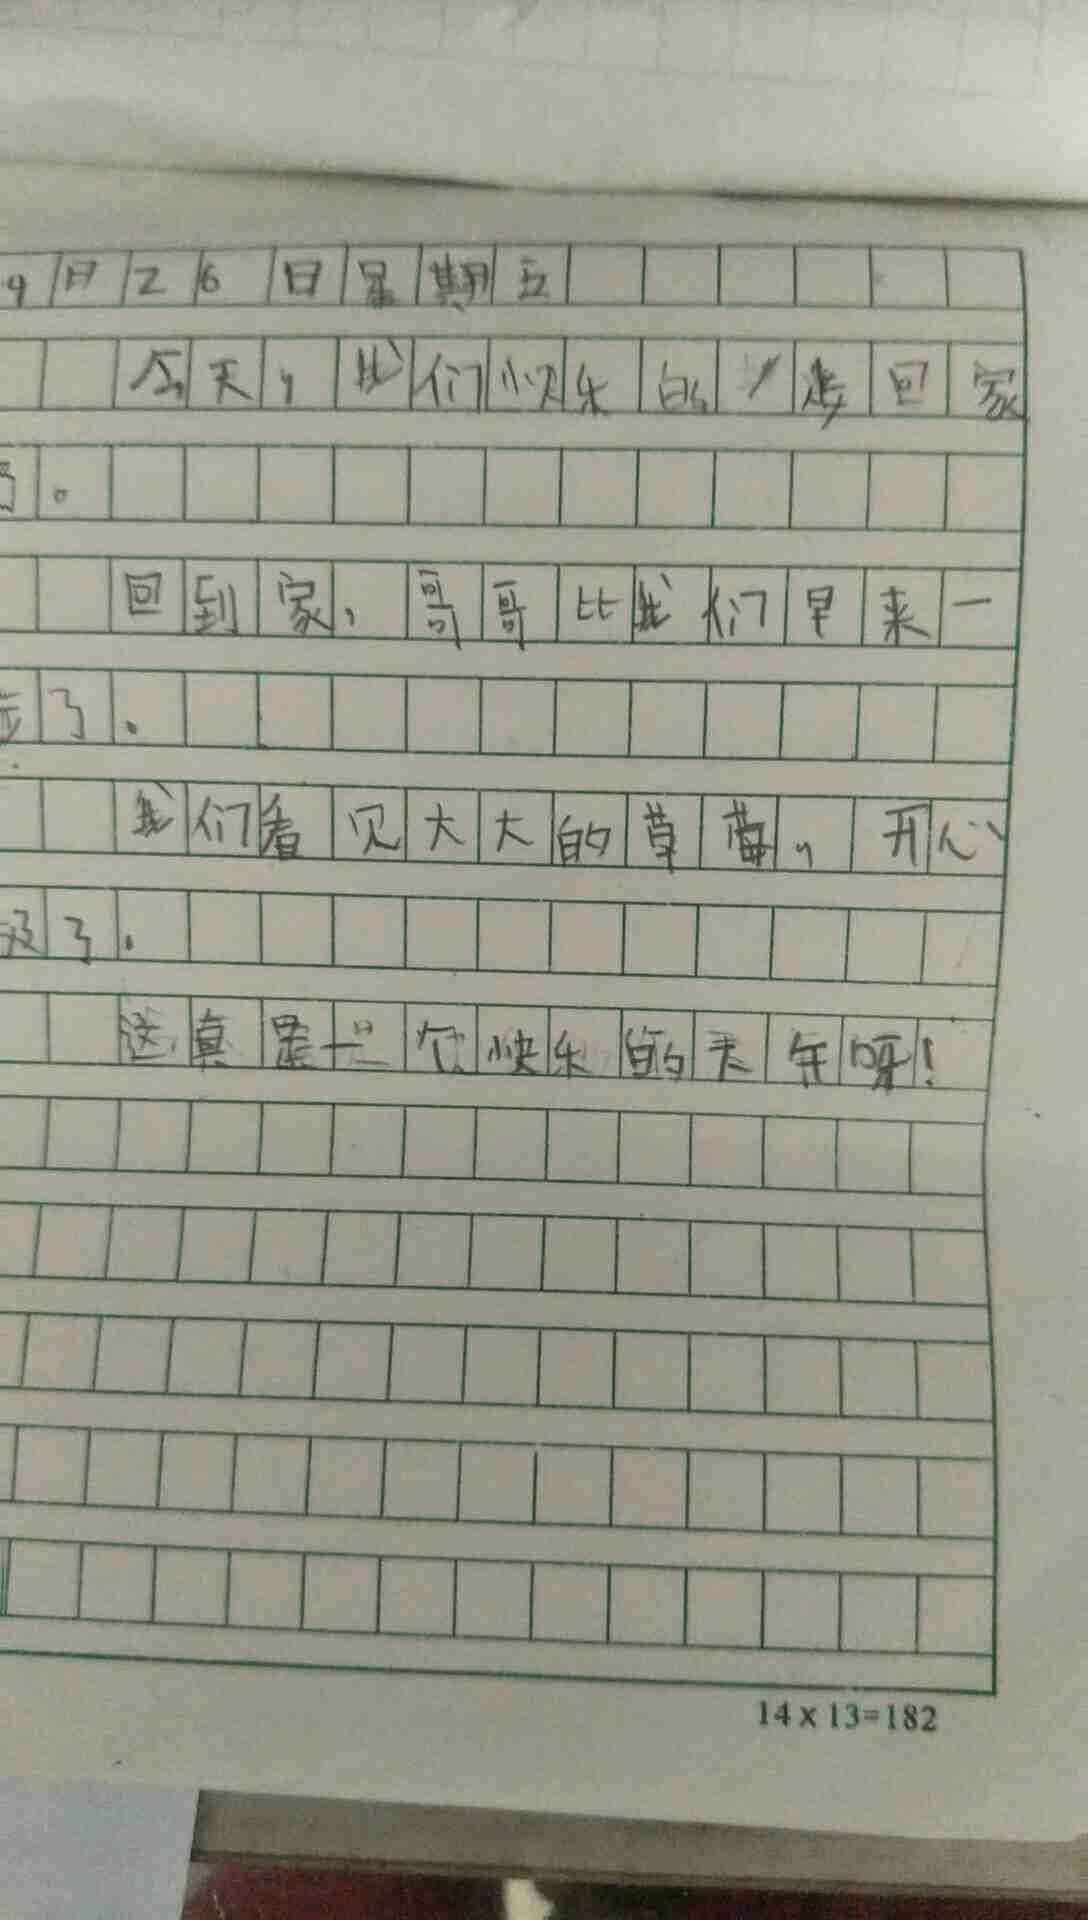 9月26日星期五
今天，我们快乐的走回家
了。
回到家，哥哥比我们早来一
步了。
我们看见大大的草莓，开心
极了。
这真是一个快乐的天午呀！
14×13=182